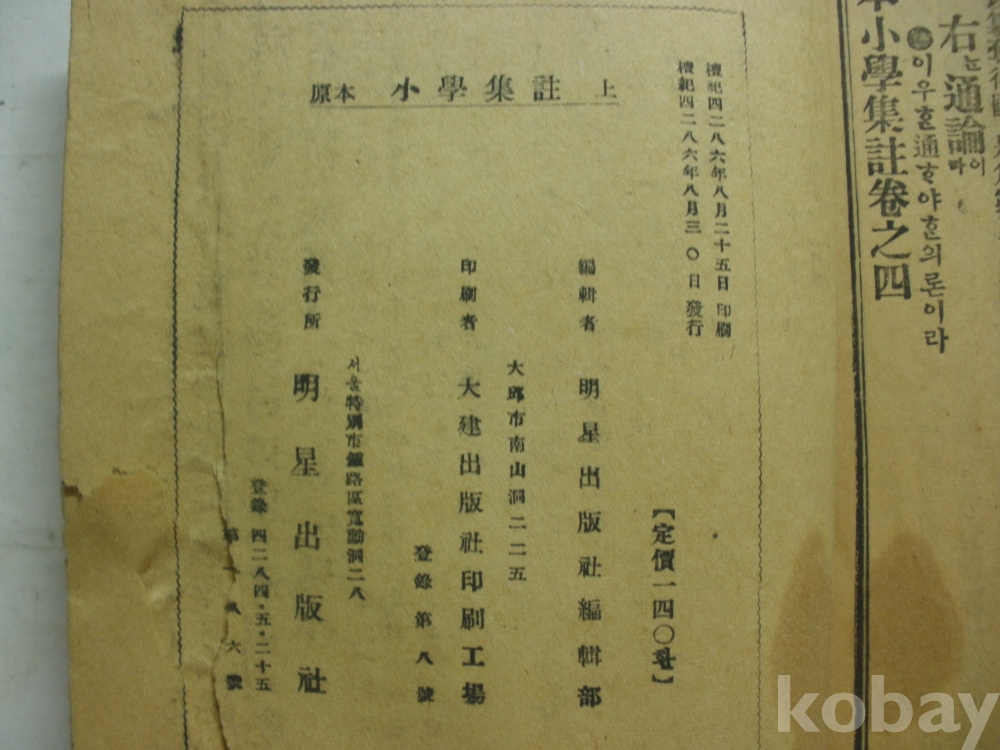 右는通論이라
이우흔通ᄒᆞ야흔의론이라
小學集註卷之四
原本 小學集註 上
檀紀四二八六年八月二十五日 印刷
檀紀四二八六年八月三〇日 發行
【定價一四〇환】
編輯者 明星出版社編輯部
大邱市南山洞二二五
印刷者 大建出版社印刷工場
登錄第八號
서울特別市鍾路區寬勳洞二八
發行所 明星出版社
登錄 四二八四·五·二十五
第一八六號
kobay